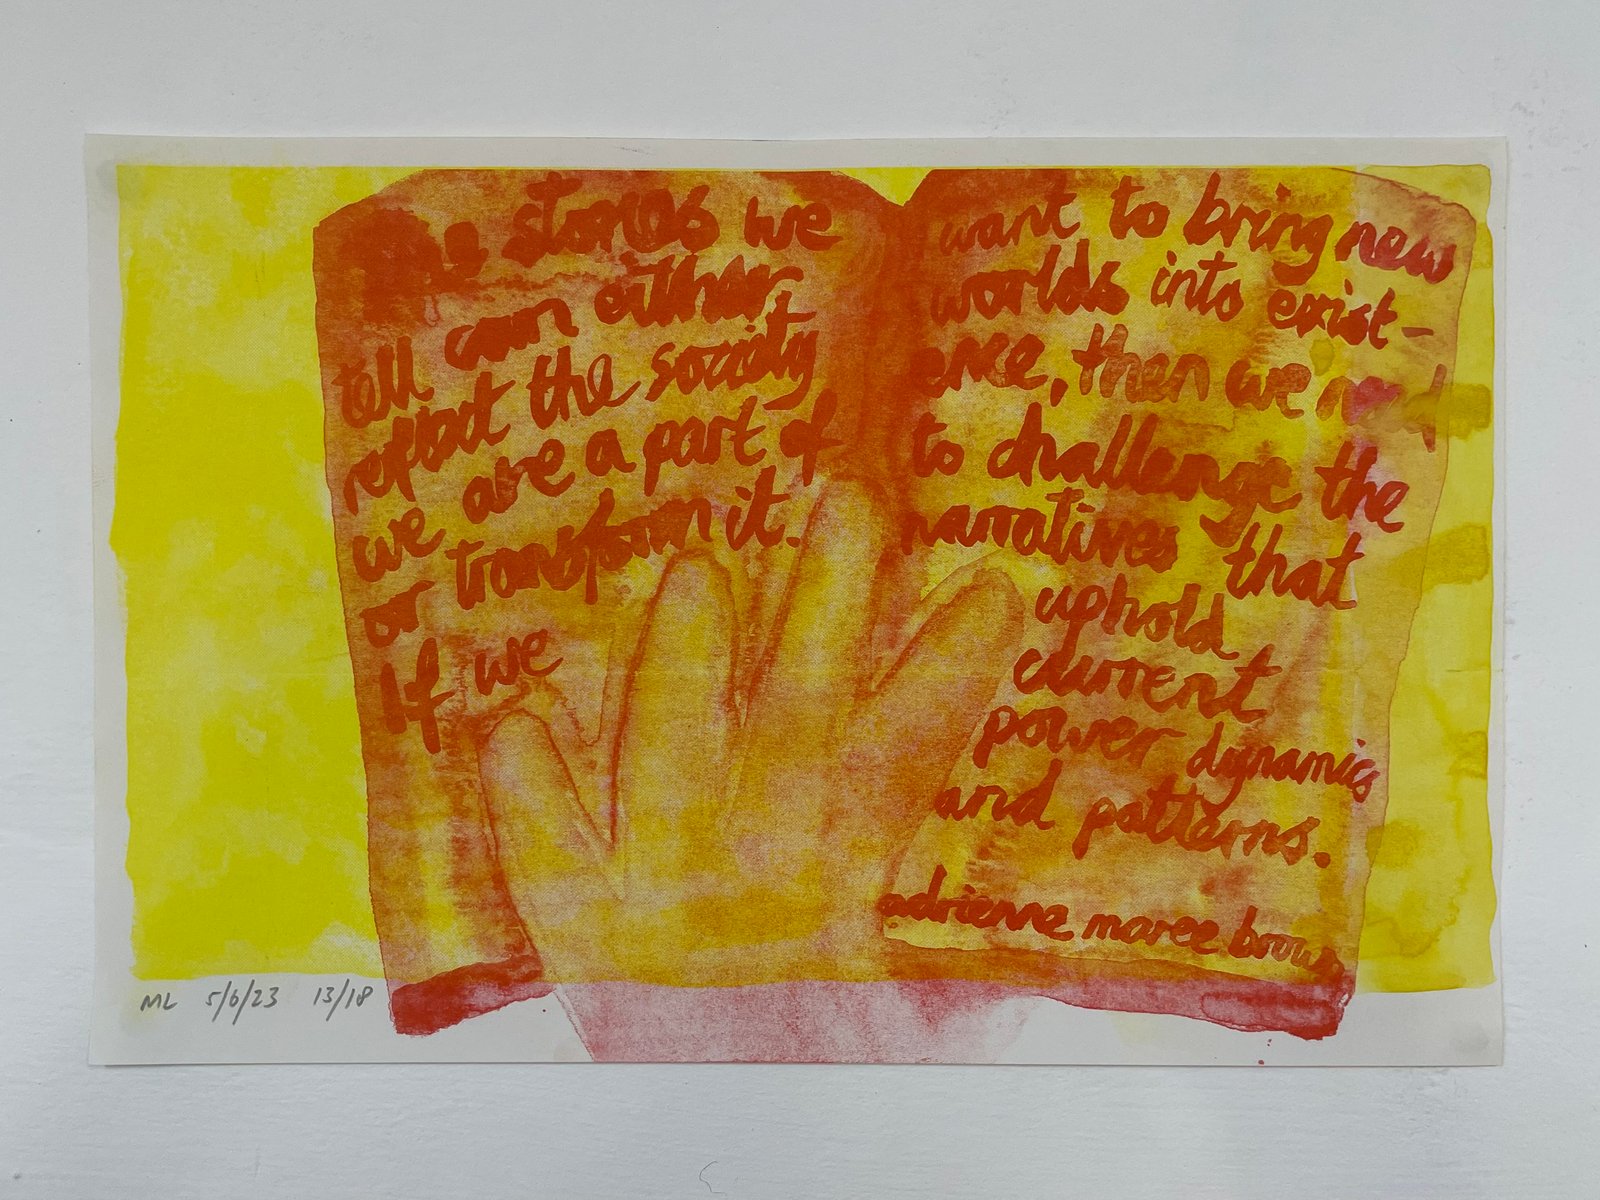 stories we
tell can either
reflect the society
we are a part of
or transform it.
If we
want to bring new
worlds into exist-
ence, then we need
to challenge the
narratives that
uphold
current
power dynamics
and patterns.
adrienne maree brown
ML 5/6/23 13/18